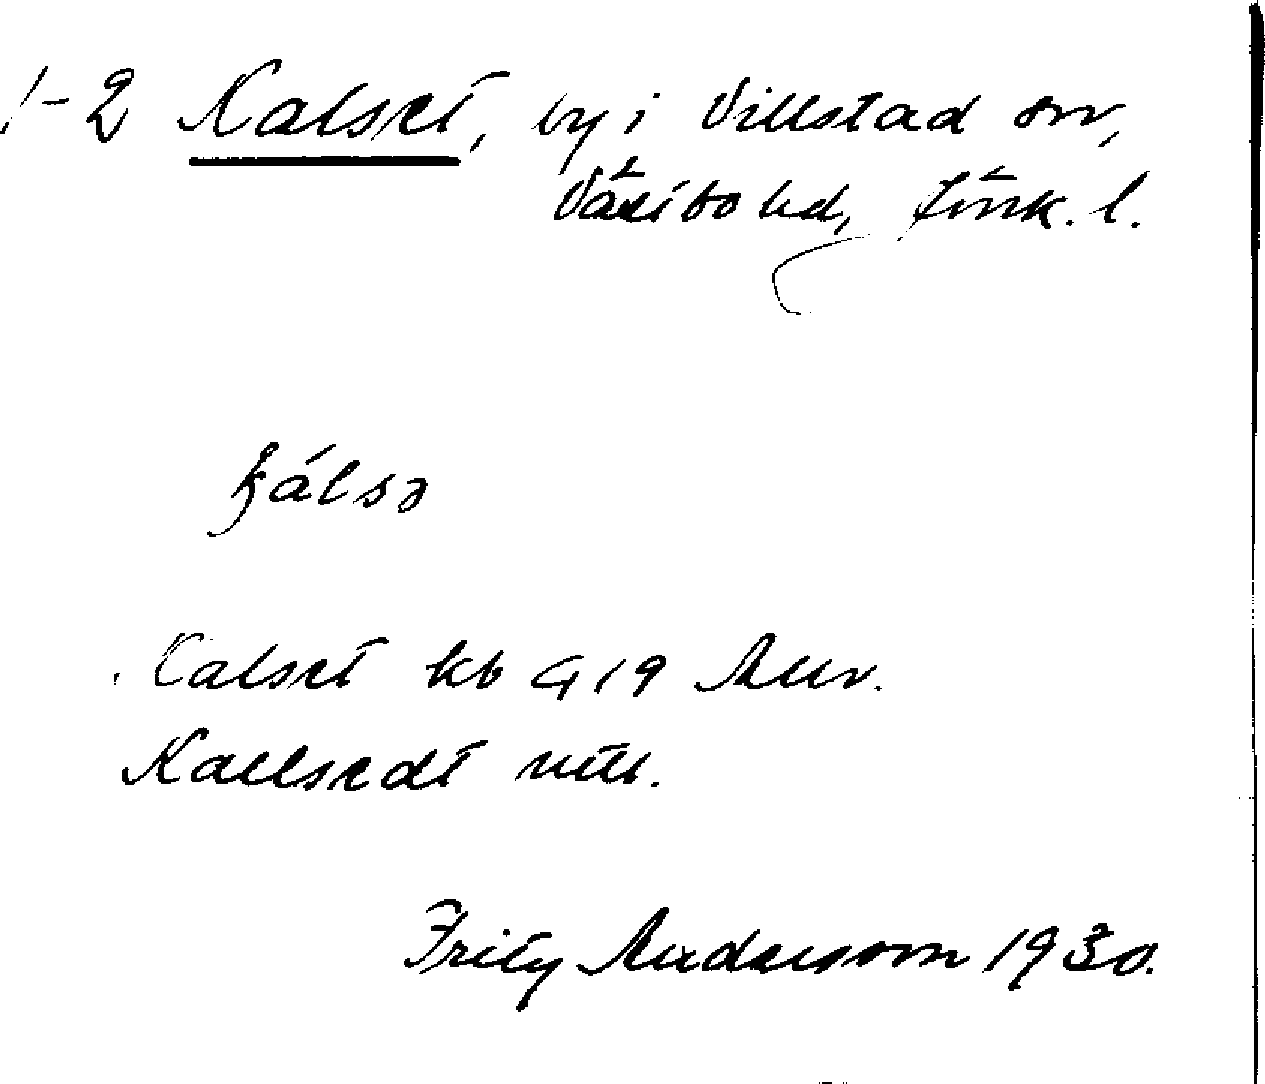 1-2 Kalset, by i Villstad sn,
Västbo hd, Jönk. l.
kálsə
Kalset kb G 19 Anv.
Kallsedt utt.
Fritz Andersson 1930.